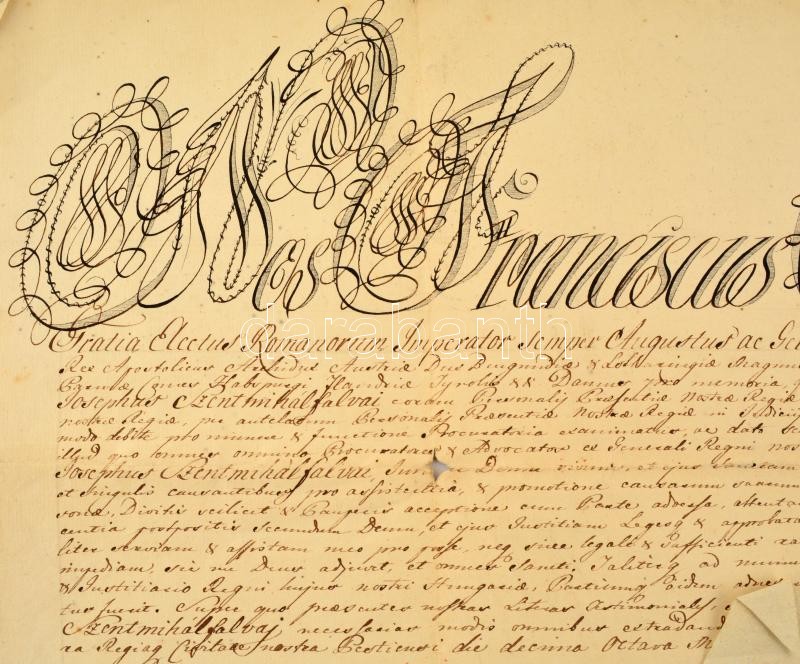 Nos Franciscus
Gratia Electus Romanorum Imperator Semper Augustus ac
Rex Apostolicus Archidux Austriæ Dux Burgundiæ & Lotharingiæ Magnus
Comes Habspurgi Flandriæ Tyrolis && Damus pro memoria,
Josephus Szentmihálfalvai coram Personalis Præsentiæ Nostræ Regiæ
nostræ Regiæ, per antelatum Personalis Præsentiæ Nostræ Regiæ in
modo debite pro munere & functione Procuratoria examinatus, ac dato
illud quo omnes omnino Procuratores & Advocatos ex Generali Regni
Josephus Szentmihálfalvai, vivum, et ejus
et singulis causantibus pro assistentia, & promotione causarum
sonæ, Divitis scilicet & Pauperis acceptione cum Parte adversa,
postpositis secundum Deum, et ejus Justitiam Leges &
serviam & assistam meo pro posse, neq sine legali & sufficienti
impediam, sic me Deus adjuvet, et omnes Sancti, Taliterq ad
& Justitiario Regni hujus nostri Hungariæ, Partiumq eidem
fuerit. Super quo præsentes nostras Literas Testimoniales,
Szentmihálfalvaj, necessarias modis omnibus
Regiaq Civitate nostra Pestiensi die decima Octava
darabanth